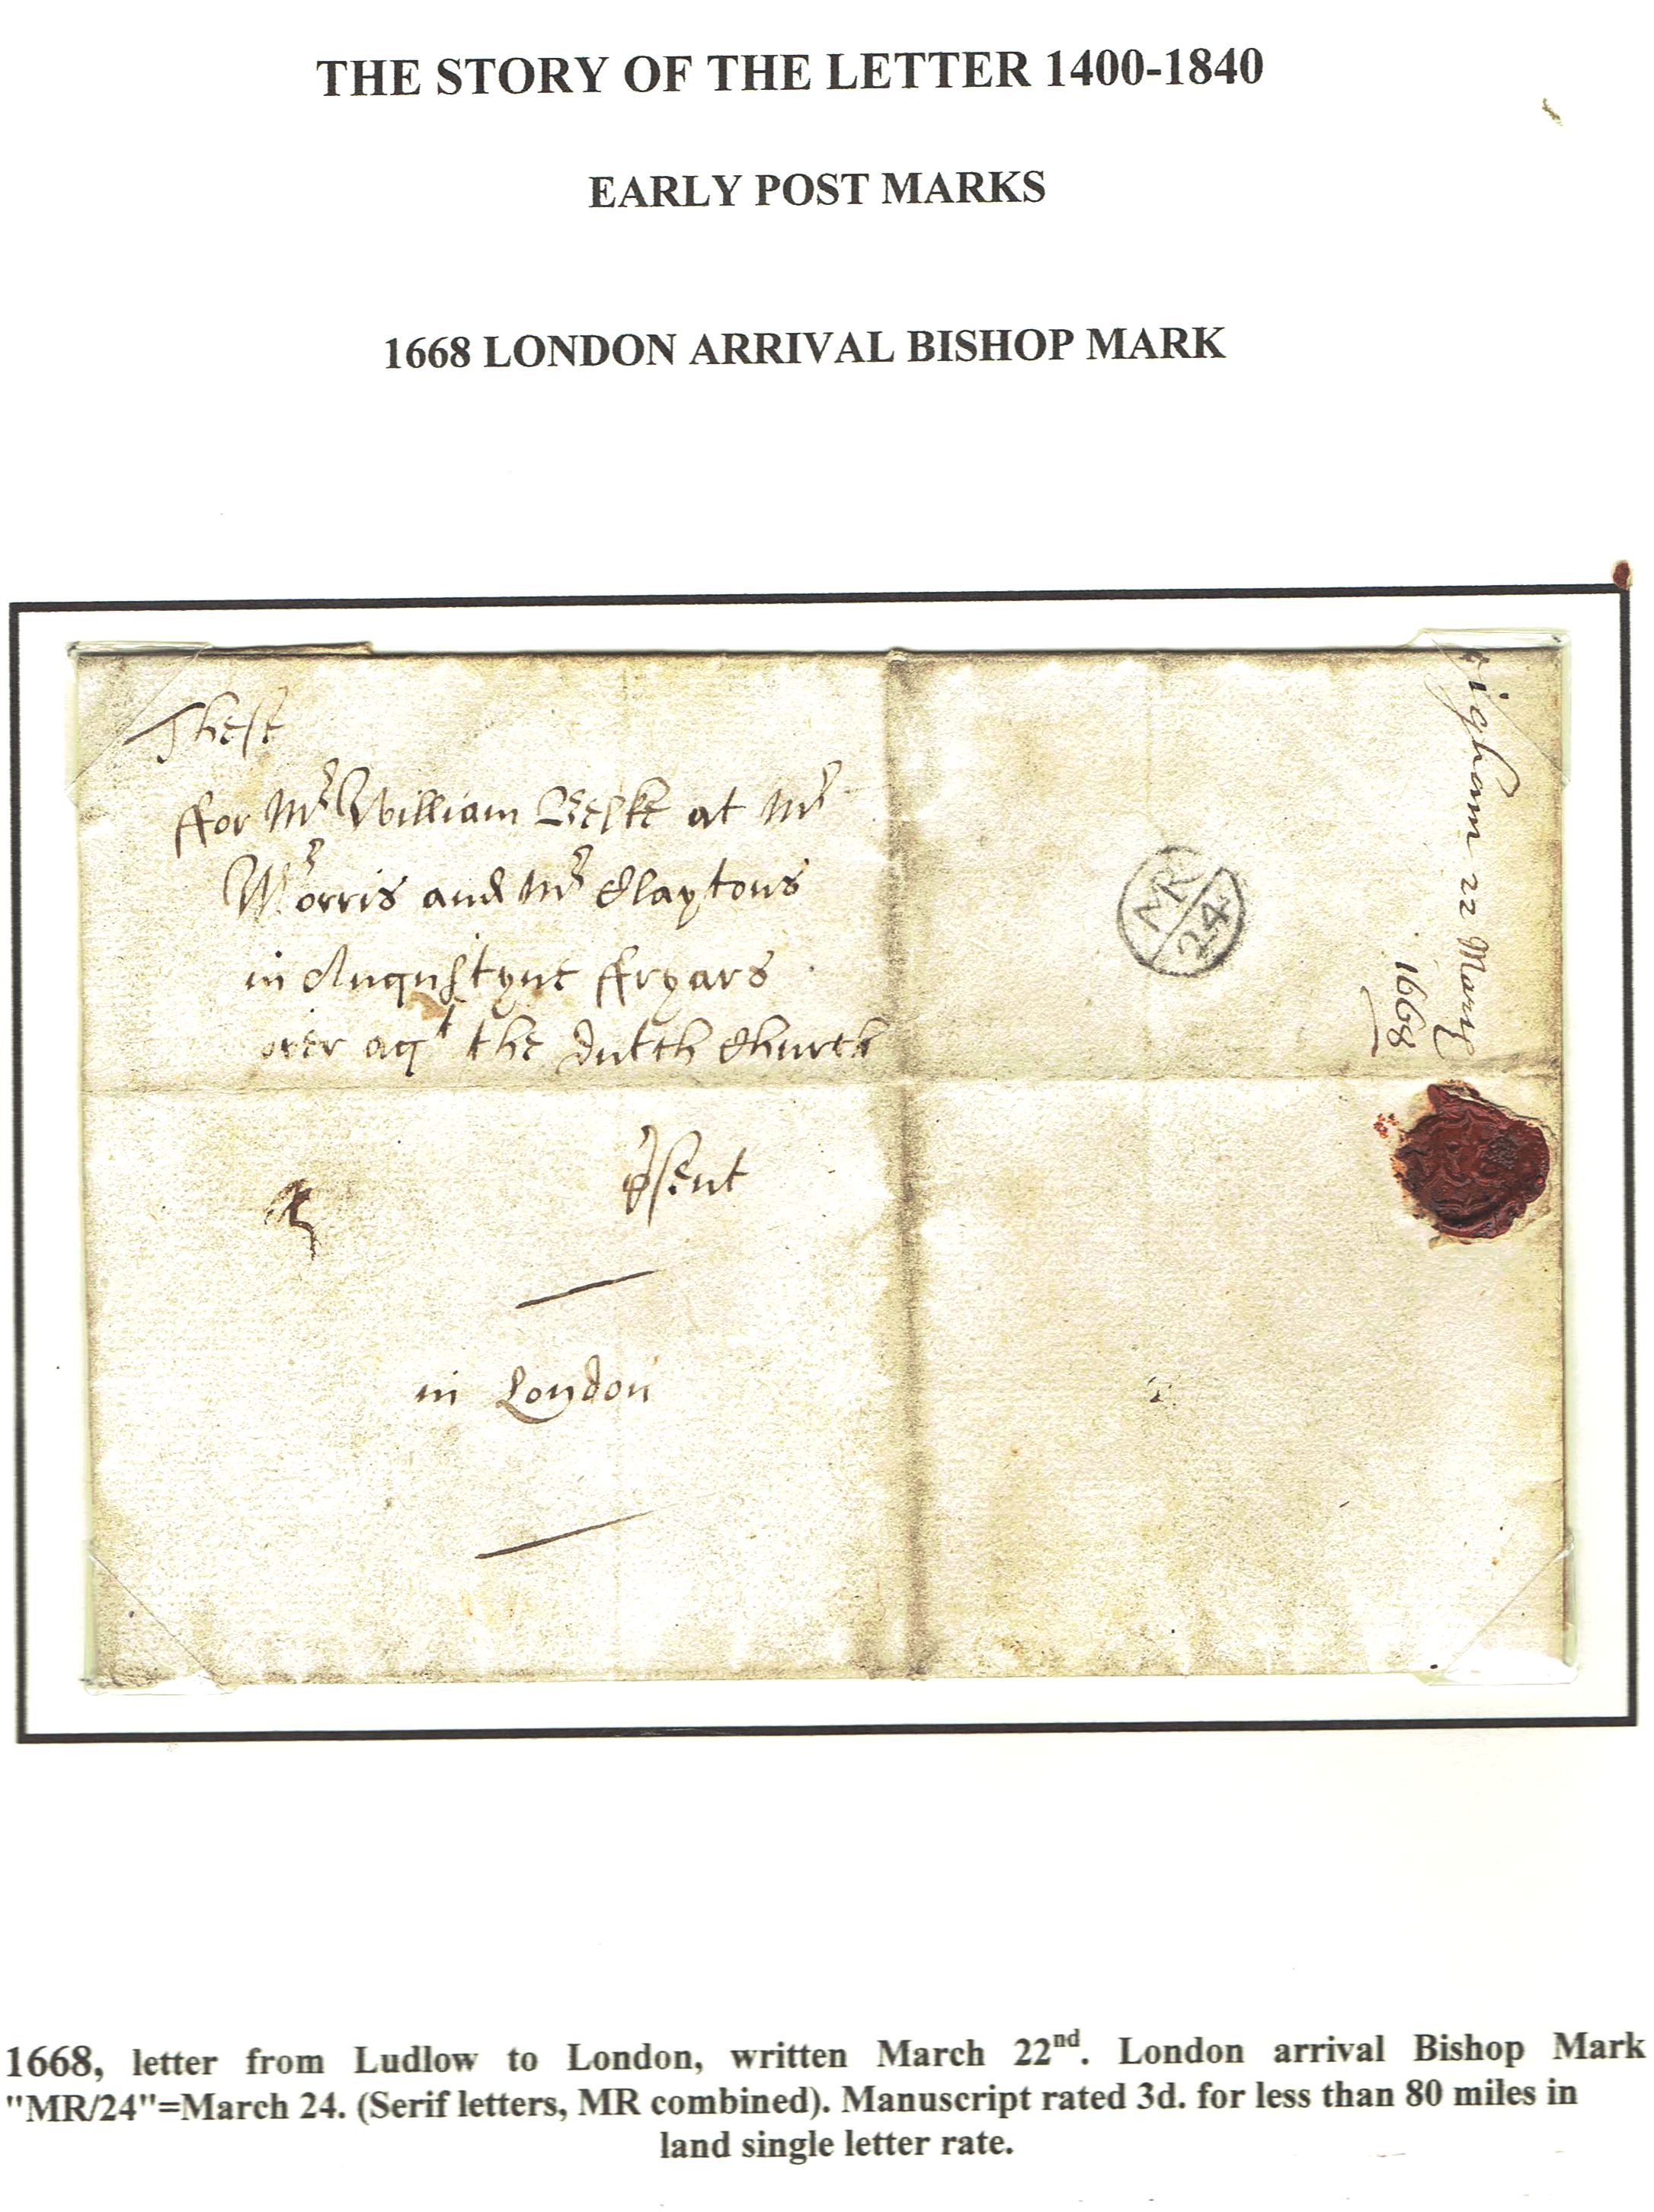 THE STORY OF THE LETTER 1400-1840
EARLY POST MARKS
1668 LONDON ARRIVAL BISHOP MARK
These
ffor Mr William at Mr
Morris and Mr Claytons
in Augustyne ffryars
over agt the dutch Church
psent
in London
MR
24
22 March
1668
1668, letter from Ludlow to London, written March 22nd. London arrival Bishop Mark
"MR/24"=March 24. (Serif letters, MR combined). Manuscript rated 3d. for less than 80 miles in
land single letter rate.